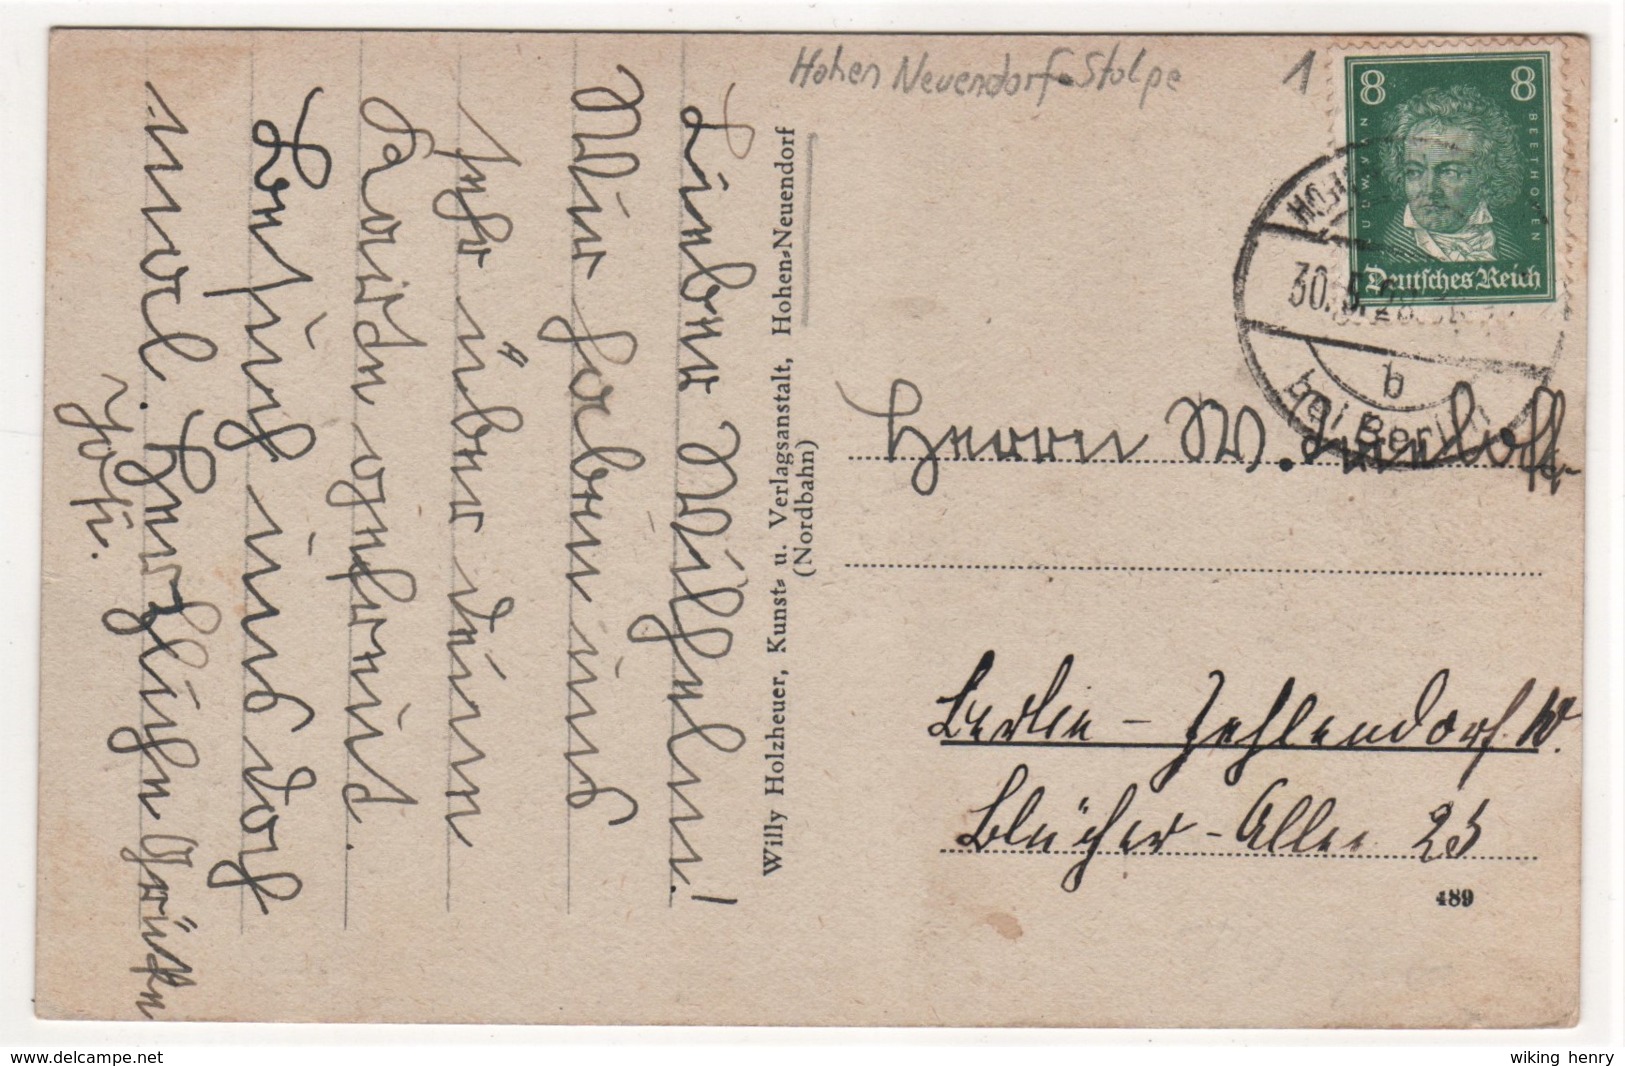 Hohen Neuendorf-Stolpe
1
8 8
LUDW. V. VAN
BEETHOVEN
Deutsches Reich
30.
b
bei Berlin
Willy Holzheuer, Kunst= u. Verlagsanstalt, Hohen=Neuendorf
(Nordbahn)
Lieber Wilhelm!
Wir haben uns
sehr über dein
Karte gefreut.
Besuch uns doch
mal. Herzlichen Grüße
Herrn W.
Berlin - Zehlendorf. W.
Blücher - Allee 25
489
www.delcampe.net
wiking henry